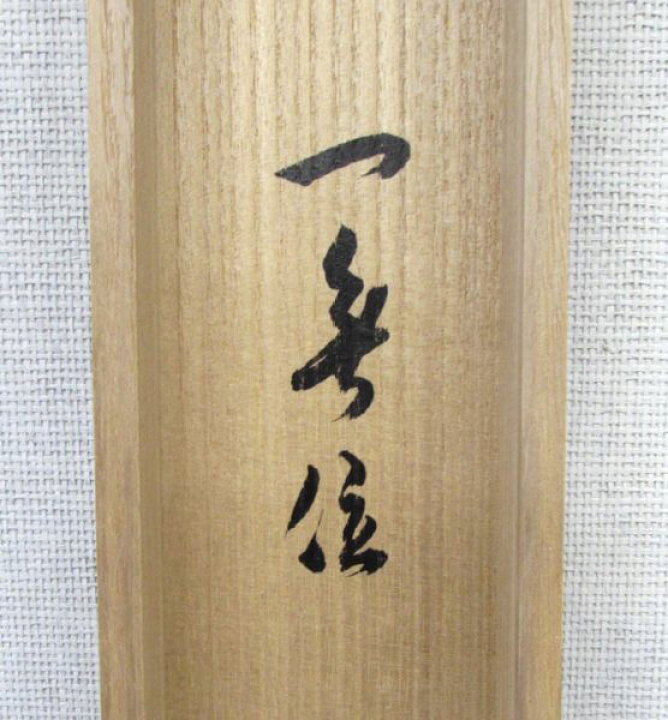 一無位